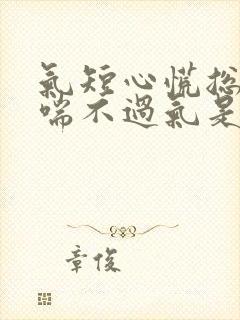 氣短心慌總
喘不過氣是
章俊